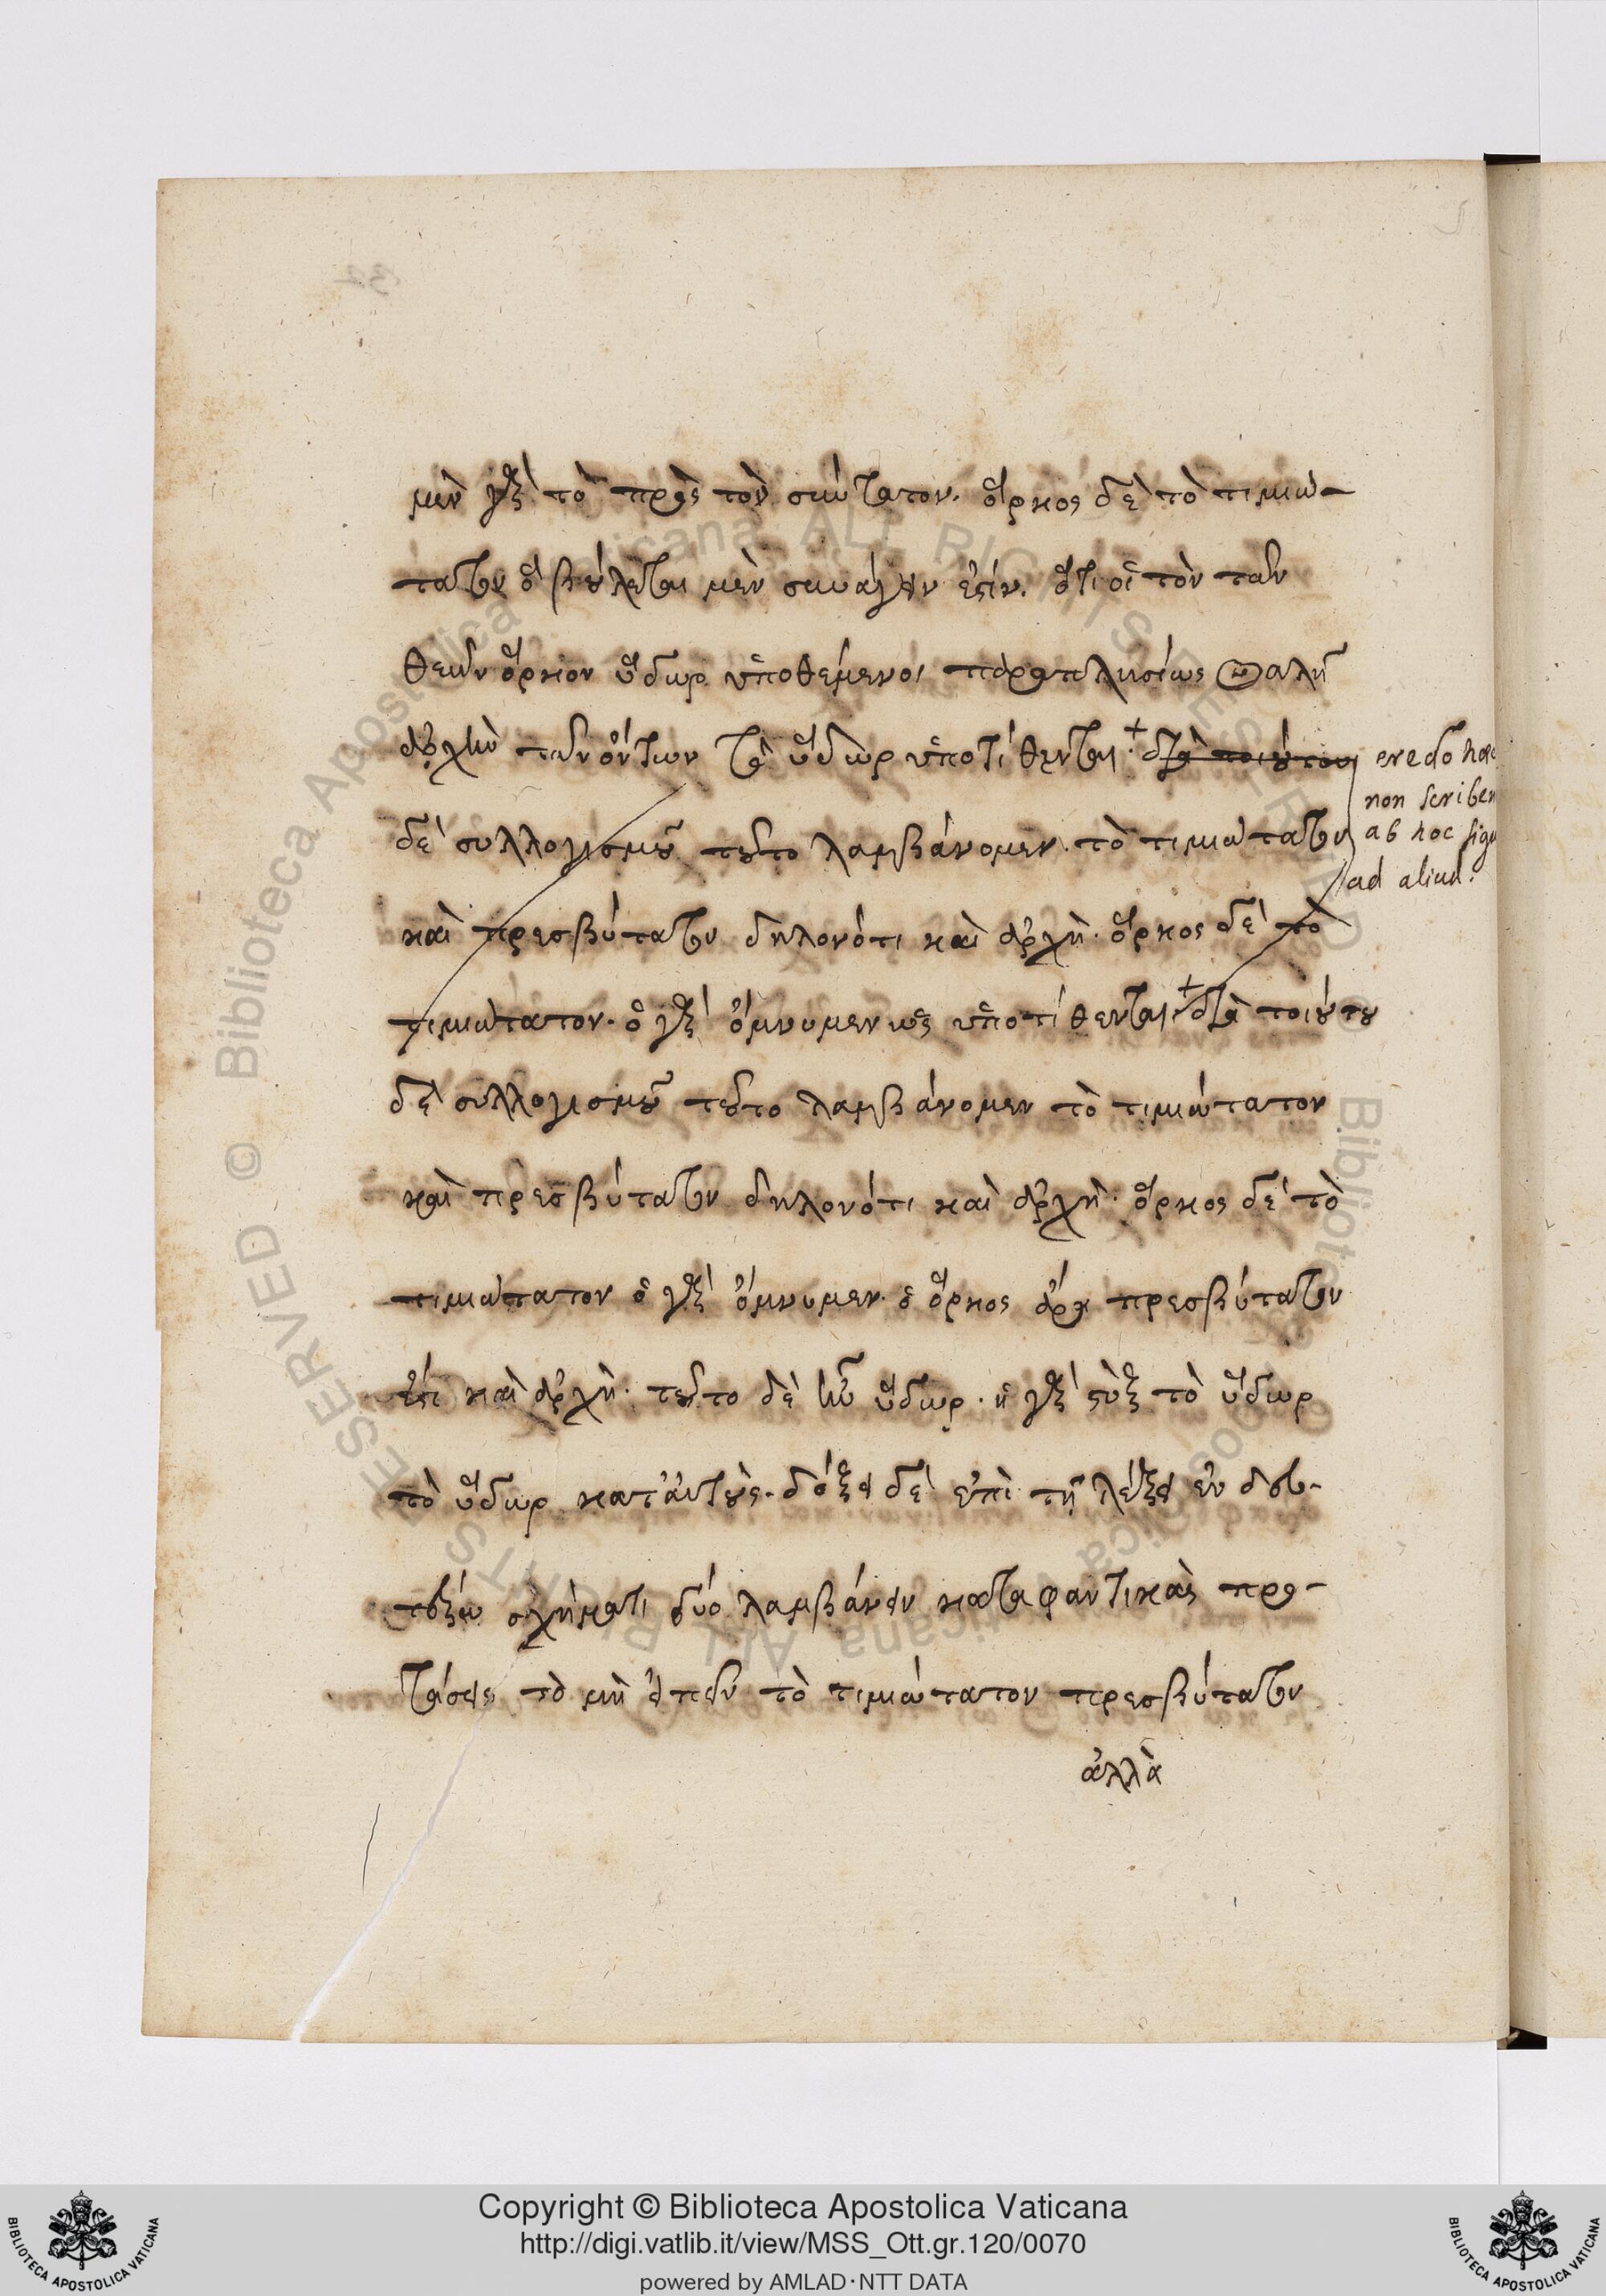 μὲν γὰρ τὸ πρεσβύτατον. ὅρκος δὲ τὸ τιμιώ-
τατον ὃ βούλεται μὲν συνάγειν ἐστίν. ὅτι οἱ τὸν τῶν
θεῶν ὅρκον ὕδωρ ὑποθέμενοι παραπλησίως Θαλῇ
ἀρχὴν τῶν ὄντων τὸ ὕδωρ ὑποτίθενται + διὰ τοιούτου
δὲ συλλογισμοῦ τοῦτο λαμβάνομεν. τὸ τιμιώτατον
καὶ πρεσβύτατον δηλονότι καὶ ἀρχή. ὅρκος δὲ τὸ
τιμιώτατον. ὃ γὰρ ὄμνυμεν ὑποτίθενται + διὰ τοιούτου
δὲ συλλογισμοῦ τοῦτο λαμβάνομεν τὸ τιμιώτατον
καὶ πρεσβύτατον δηλονότι καὶ ἀρχή. ὅρκος δὲ τὸ
τιμιώτατον ὃ γὰρ ὄμνυμεν. ὁ ὅρκος ἄρα πρεσβύτατον
ἐστὶ καὶ ἀρχή. τοῦτο δὲ ἦν ὕδωρ. ἡ γὰρ στὺξ τὸ ὕδωρ
τὸ ὕδωρ κατ' αὐτούς. δόξει δὲ ἐπὶ τῇ λέξει ἐν δευ-
τέρῳ σχήματι δύο λαμβάνειν καταφαντικὰς προ-
τάσεις τὸ μὴ εἰπεῖν τὸ τιμιώτατον πρεσβύτατον
ἀλλὰ
credo hæc
non scriben
ab hoc sign
ad aliud.
Copyright © Biblioteca Apostolica Vaticana
http://digi.vatlib.it/view/MSS_Ott.gr.120/0070
powered by AMLAD·NTT DATA
BIBLIOTECA APOSTOLICA VATICANA
BIBLIOTECA APOSTOLICA VATICANA